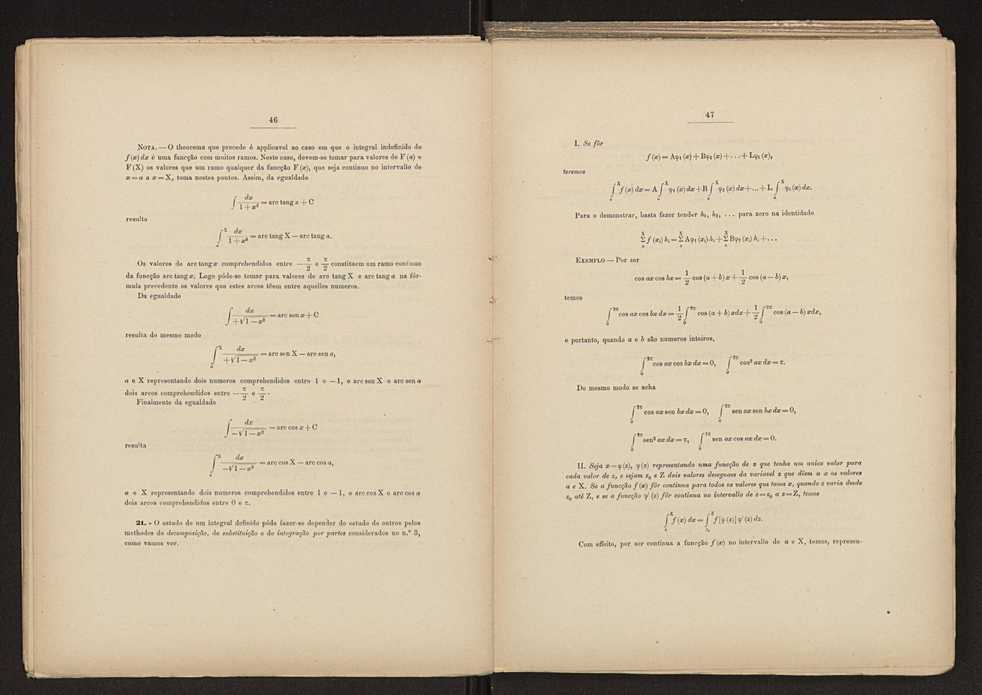 46
NOTA. — O theorema que precede é applicavel ao caso em que o integral indefinido de
f(x) dx é uma funcção com muitos ramos. Neste caso, devem-se tomar para valores de F(a) e
F(X) os valores que um ramo qualquer da funcção F(x), que seja continuo no intervallo de
x = a a x = X, toma nestes pontos. Assim, da egualdade
∫ dx / (1 + x²) = arc tang x + C
resulta
∫ₐ^X dx / (1 + x²) = arc tang X — arc tang a.
Os valores de arc tang x comprehendidos entre — π/2 e π/2 constituem um ramo continuo
da funcção arc tang x. Logo póde-se tomar para valores de arc tang X e arc tang a na fór-
mula precedente os valores que estes arcos têem entre aquelles numeros.
Da egualdade
∫ dx / (+√1 — x²) = arc sen x + C
resulta do mesmo modo
∫ₐ^X dx / (+√1 — x²) = arc sen X — arc sen a,
a e X representando dois numeros comprehendidos entre 1 e — 1, e arc sen X e arc sen a
dois arcos comprehendidos entre — π/2 e π/2.
Finalmente da egualdade
∫ dx / (—√1 — x²) = arc cos x + C
resulta
∫ₐ^X dx / (—√1 — x²) = arc cos X — arc cos a,
a e X representando dois numeros comprehendidos entre 1 e — 1, e arc cos X e arc cos a
dois arcos comprehendidos entre 0 e π.
21. - O estudo de um integral definido póde fazer-se depender do estudo de outros pelos
methodos de decomposição, de substituição e de integração por partes considerados no n.º 3,
como vamos ver.
47
I. Se fôr
f(x) = Aφ₁(x) + Bφ₂(x) + . . . + Lφₗ(x),
teremos
∫ₐ^X f(x) dx = A ∫ₐ^X φ₁(x) dx + B ∫ₐ^X φ₂(x) dx + ... + L ∫ₐ^X φₗ(x) dx.
Para o demonstrar, basta fazer tender h₁, h₂, . . . para zero na identidade
Σₐ^X f(xᵢ) hᵢ = Σₐ^X Aφ₁(xᵢ) hᵢ + Σₐ^X Bφ₂(xᵢ) hᵢ + . . .
EXEMPLO — Por ser
cos ax cos bx = 1/2 cos (a + b) x + 1/2 cos (a — b) x,
temos
∫₀^2π cos ax cos bx dx = 1/2 ∫₀^2π cos (a + b) xdx + 1/2 ∫₀^2π cos (a — b) xdx,
e portanto, quando a e b são numeros inteiros,
∫₀^2π cos ax cos bx dx = 0, ∫₀^2π cos² ax dx = π.
Do mesmo modo se acha
∫₀^2π cos ax sen bx dx = 0, ∫₀^2π sen ax sen bx dx = 0,
∫₀^2π sen² ax dx = π, ∫₀^2π sen ax cos ax dx = 0.
II. Seja x = ψ(z), ψ(z) representando uma funcção de z que tenha um unico valor para
cada valor de z, e sejam z₀ e Z dois valores deseguaes da variavel z que dêem a x os valores
a e X. Se a funcção f(x) fôr continua para todos os valores que toma x, quando z varía desde
z₀ até Z, e se a funcção ψ′(z) fôr continua no intervallo de z = z₀ a z = Z, temos
∫ₐ^X f(x) dx = ∫_z₀^Z f[ψ(z)] ψ′(z) dz.
Com effeito, por ser continua a funcção f(x) no intervallo de a e X, temos, represen-